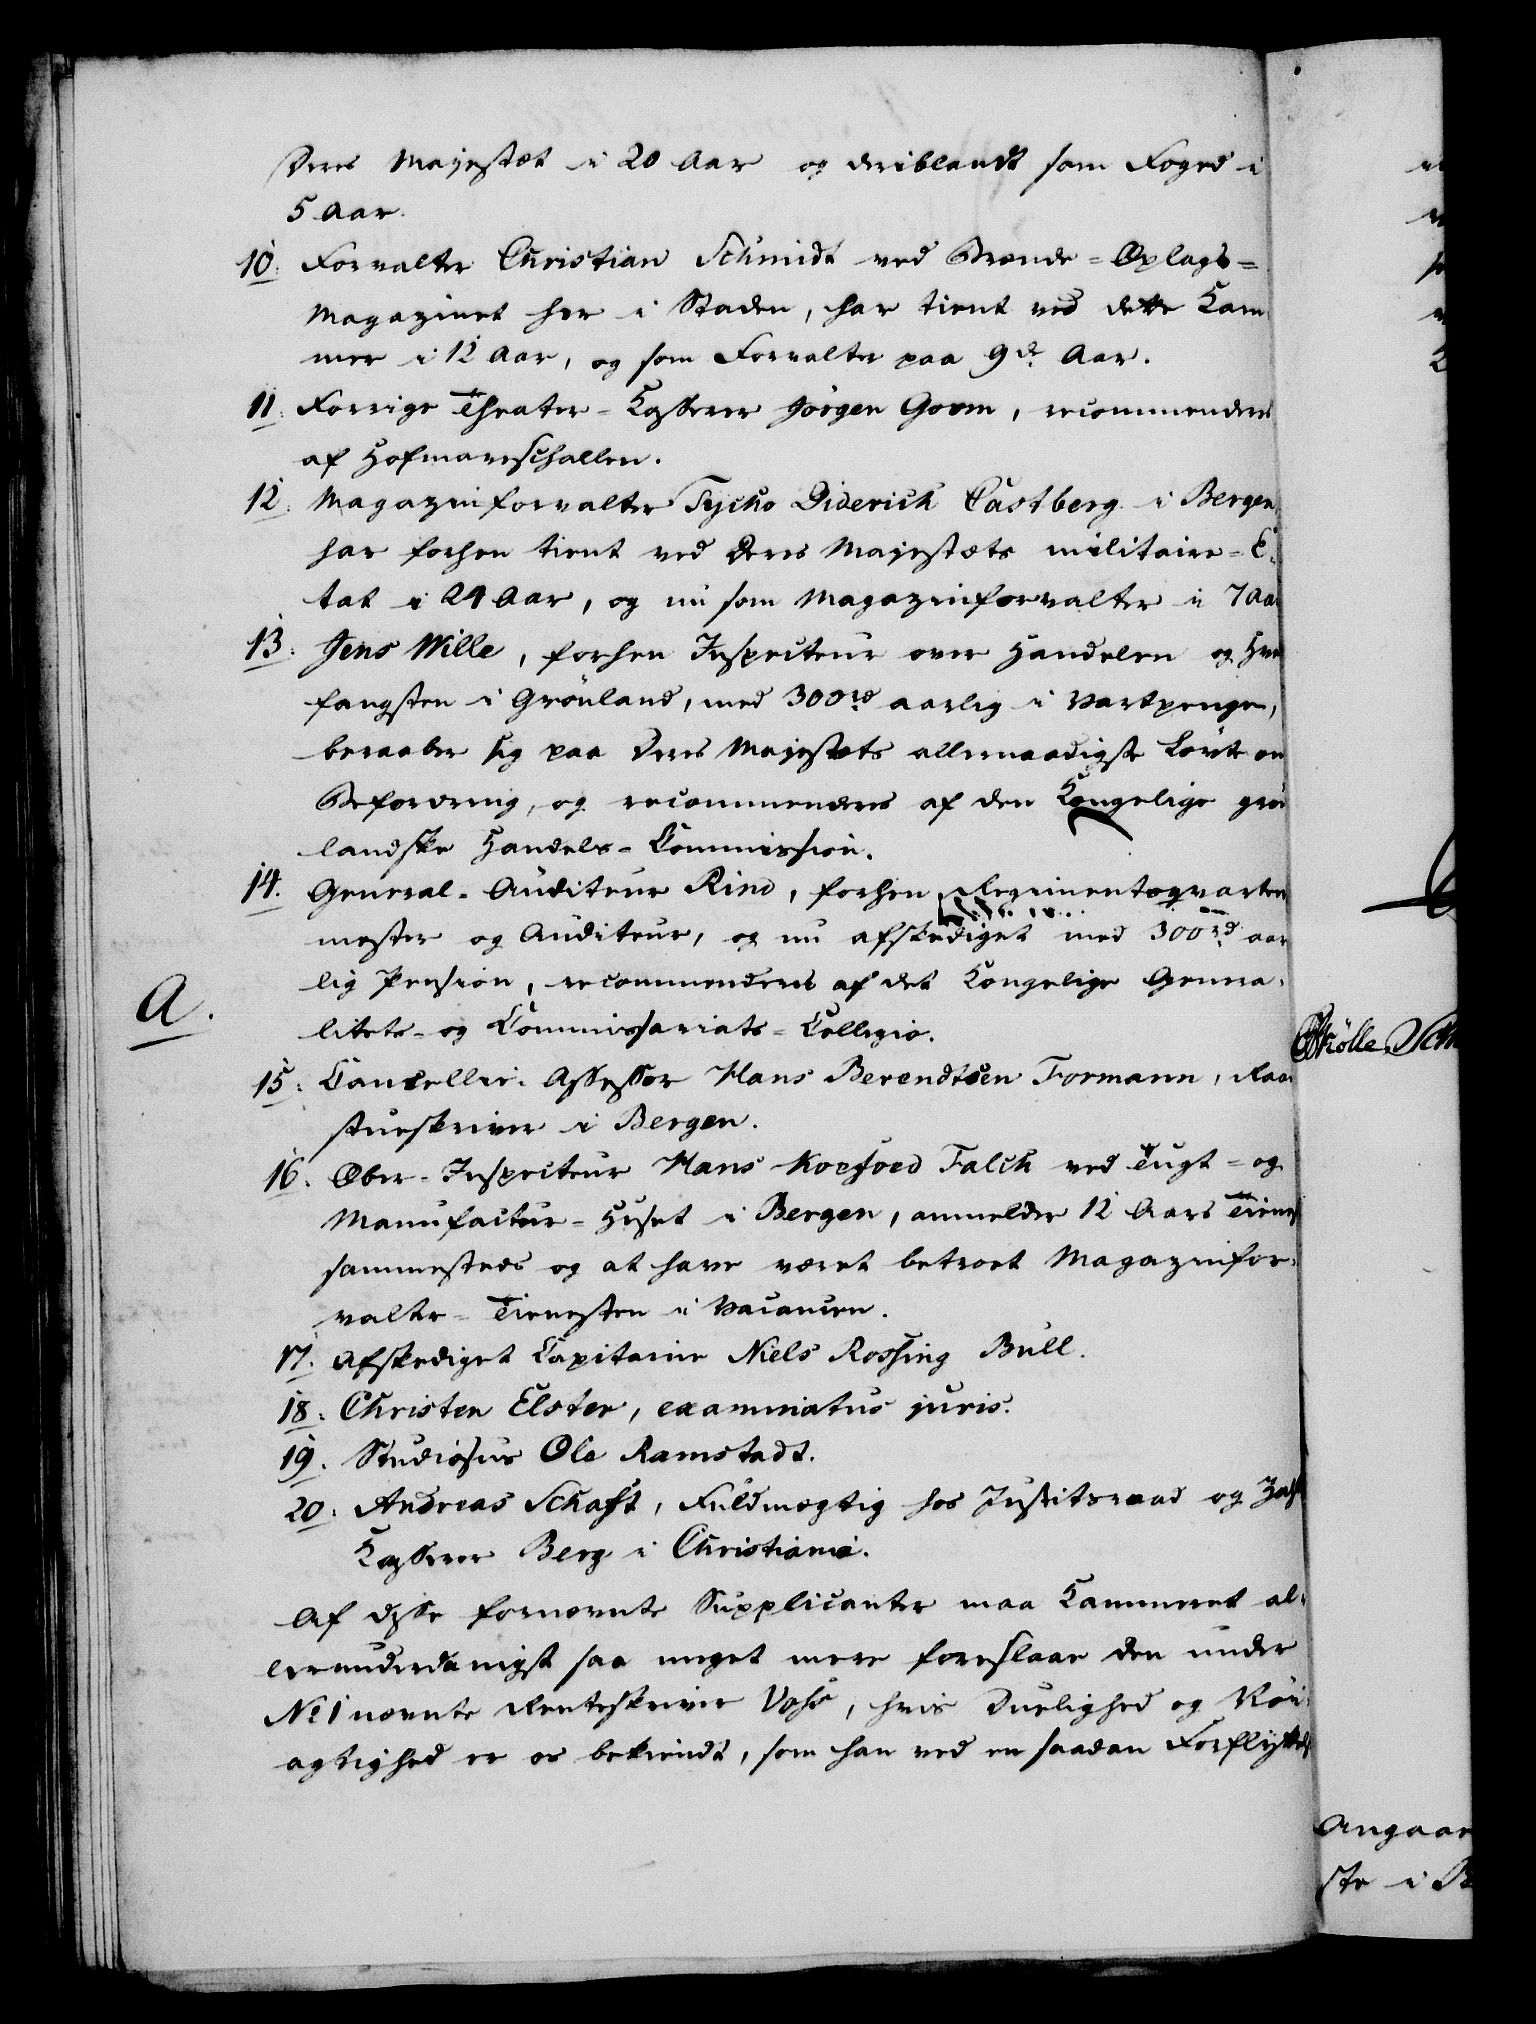 Deres Majestæt i 20 Aar og deriblandt som Foged i
5 Aar.
10. Forvalter Christian Schmidt ved Brænde-Oplags-
Magazinet her i Staden, har tient ved dette Kam
mer i 12 Aar, og som Forvalter paa 9de Aar.
11. Forrige Theater-Kasserer Jörgen Gorm, recommenderes
af Hofmarschallen.
12. Magazinforvalter Tycho Diderich Castberg i Bergen,
har forhen tient ved Deres Majestæts militaire-E-
tat i 24 Aar, og nu som Magazinforvalter i 7 Aar
13. Jens Wille, forhen Inspecteur over Handelen og Hval
fangsten i Grönland, med 300rd aarlig i Vartpenge,
beraaber sig paa Deres Majestæts allernaadigste Löfte om
Befordring, og recommenderes af den Kongelige grön
landske Handels-Commission.
14. General-Auditeur Rind, forhen Regimentsqvarteer
mester og Auditeur, og nu afskediget med 300rd aar
lig Pension, recommenderes af det Kongelige Genera-
litets- og Commissariats-Collegio.
A.
15. Cancellie-Assessor Hans Berendtsen Formann, Raad
stueskriver i Bergen.
16. Ober-Inspecteur Hans Koefoed Falch ved Tugt- og
Manufactur-Huset i Bergen, anmelder 12 Aars Tienest
sammesteds og at have været betroet Magazinfor-
valter-Tienesten i Vacancen.
17. Afskediget Capitaine Niels Rossing Bull.
18. Christen Elster, examinatus juris.
19. Studiosus Ole Ramstadt.
20. Andreas Schaft, Fuldmægtig hos Justitsraad og
Kasserer Berg i Christiania.
Af disse fornævnte Supplicanter maa Kammeret al-
lerunderdanigst saa meget mere foreslaae den under
No 1 nævnte Renteskriver Vohs, hvis Duelighed og Nöi-
agtighed er os bekiendt, som han ved en saadan Forflyttelse
Angaar
ste i B